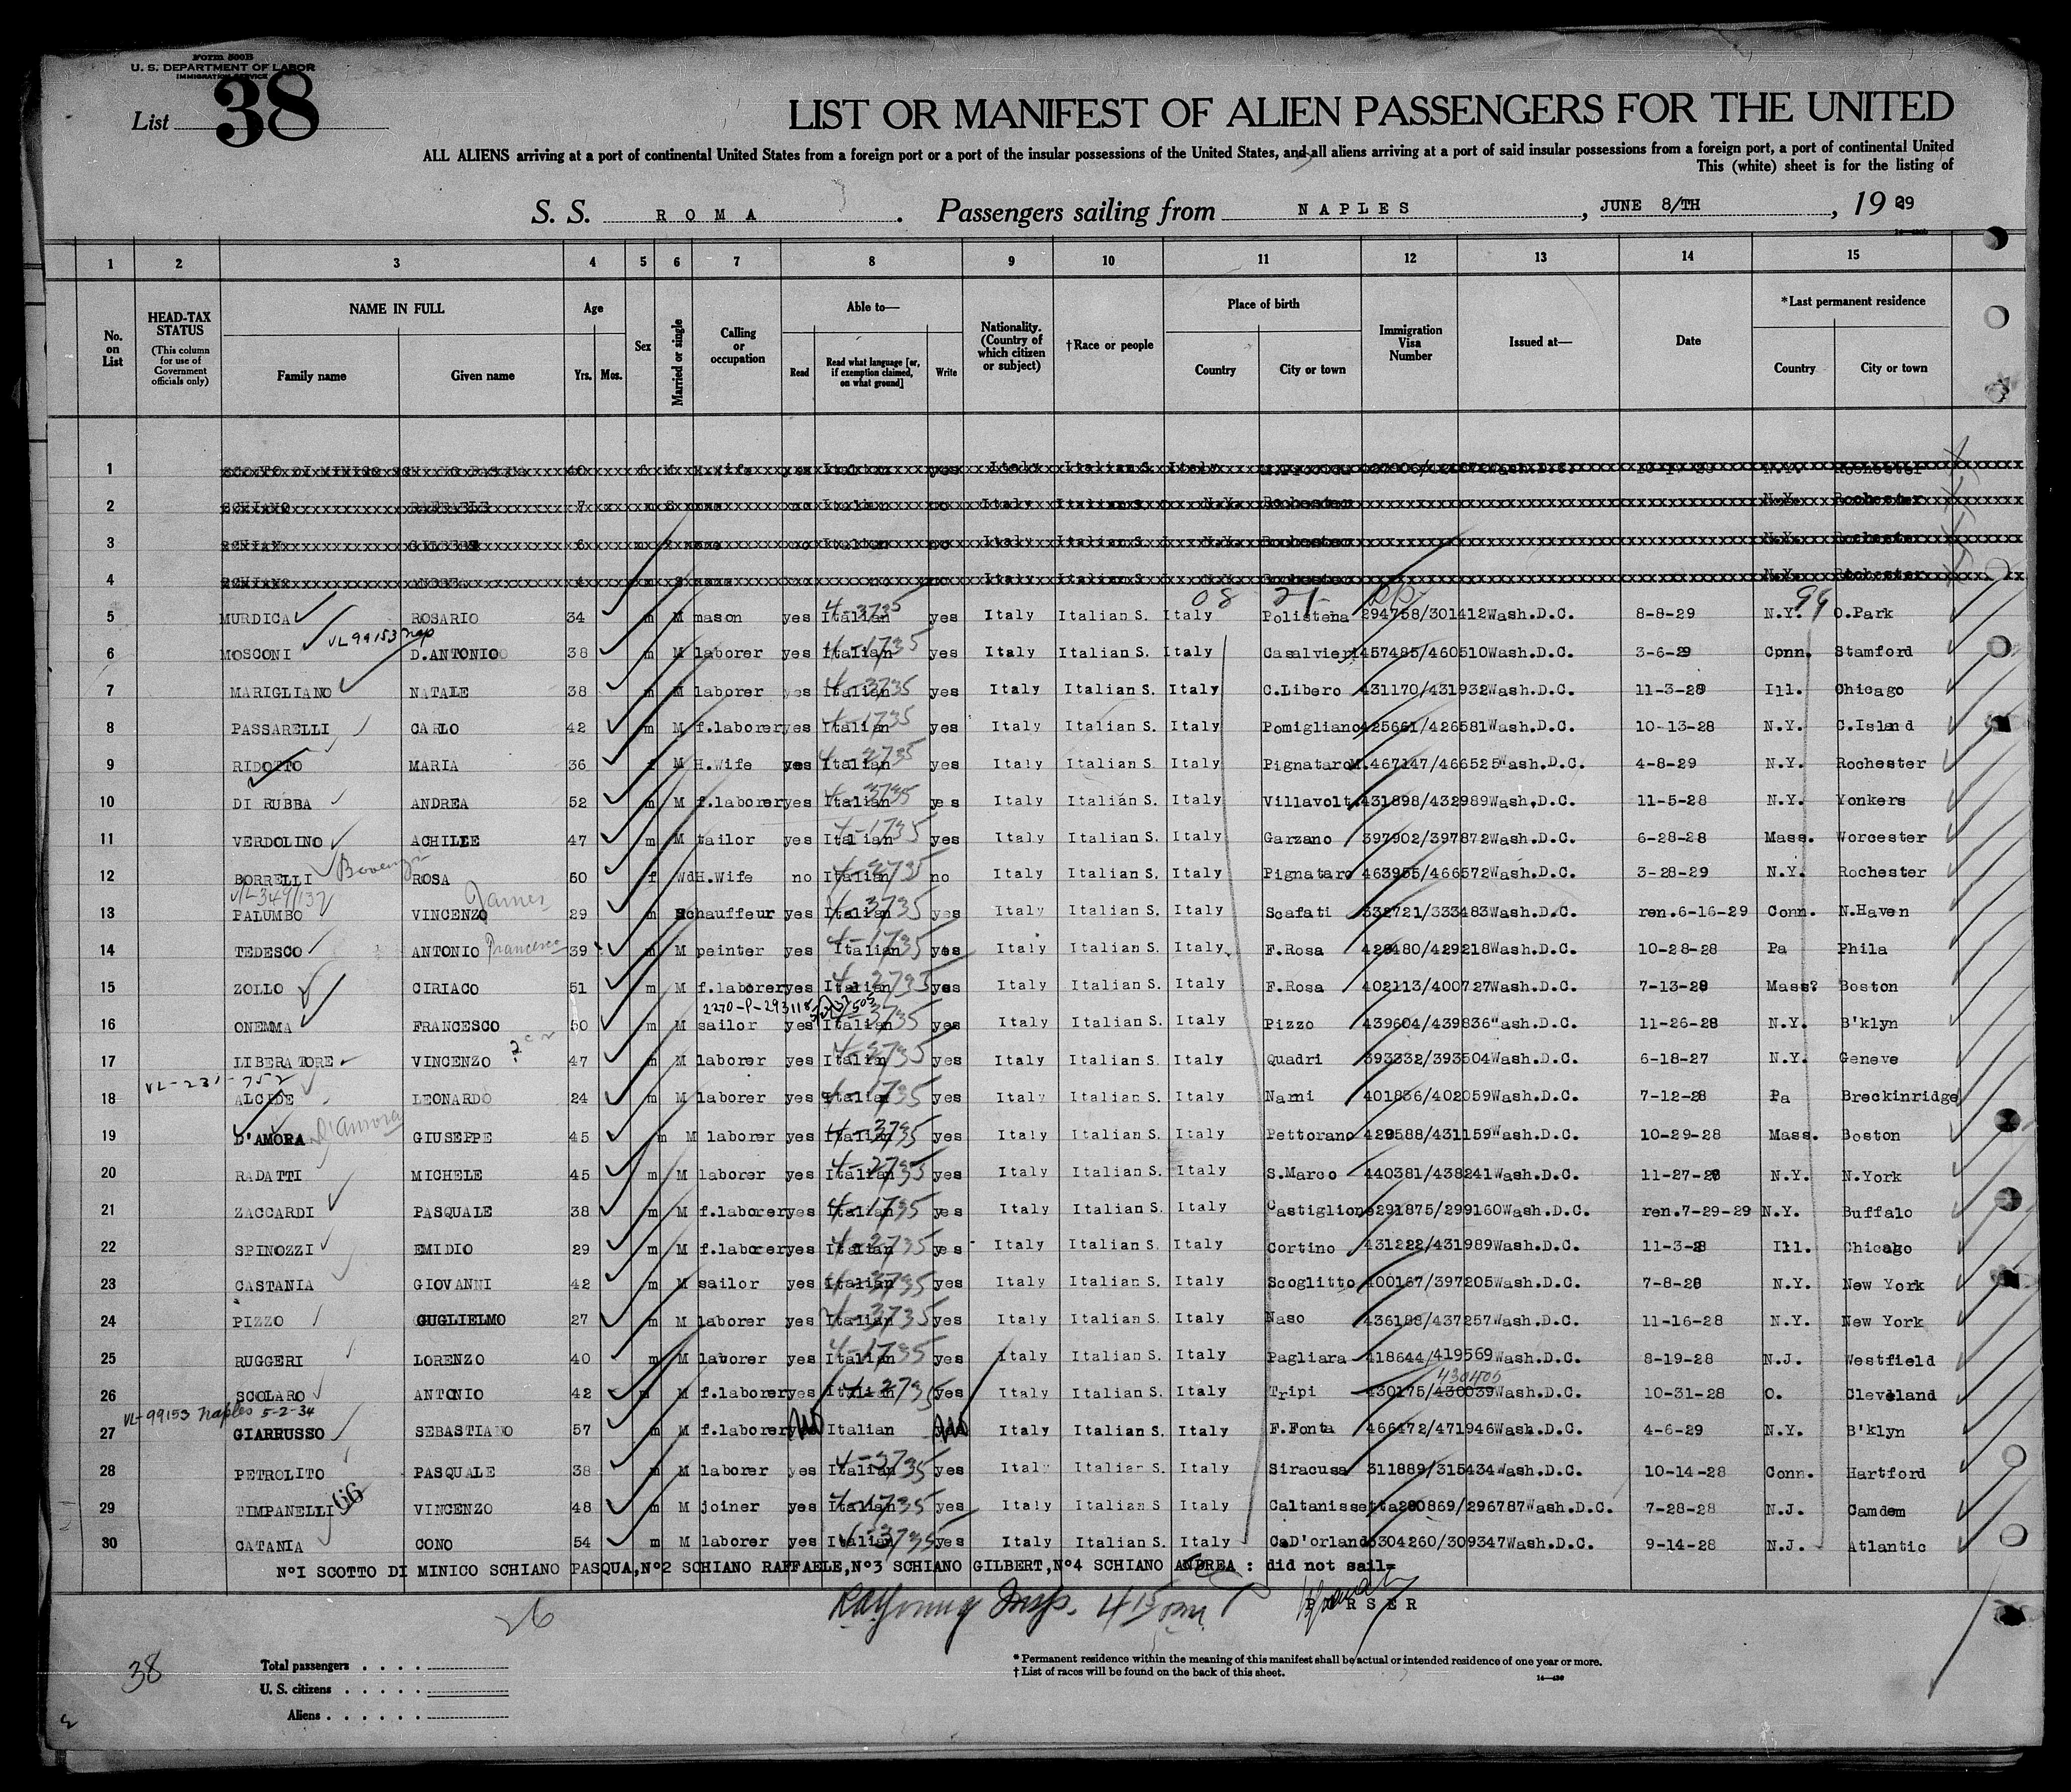 Form 500B
U. S. DEPARTMENT OF LABOR
IMMIGRATION SERVICE
List 38
LIST OR MANIFEST OF ALIEN PASSENGERS FOR THE UNITED
ALL ALIENS arriving at a port of continental United States from a foreign port or a port of the insular possessions of the United States, and all aliens arriving at a port of said insular possessions from a foreign port, a port of continental United
This (white) sheet is for the listing of
S. S. ROMA. Passengers sailing from NAPLES, JUNE 8/TH, 1929
1 2 3 4 5 6 7 8 9 10 11 12 13 14 15
No. on List
HEAD-TAX STATUS (This column for use of Government officials only)
NAME IN FULL Family name Given name
Age Yrs. Mos.
Sex
Married or single
Calling or occupation
Able to— Read Read what language [or, if exemption claimed, on what ground] Write
Nationality. (Country of which citizen or subject)
†Race or people
Place of birth Country City or town
Immigration Visa Number
Issued at—
Date
*Last permanent residence Country City or town
1 H.Wife yes Italian yes Italy Italian S. Italy N.Y. Rochester
2 SCHIANO RAFFAELE 7 m S no Italian no Italy Italian S. N.Y. Rochester N.Y. Rochester
3 6 no Italian no Italy Italian S. N.Y. Rochester N.Y. Rochester
4 SCHIANO ANDREA Italy Italian S. N.Y. Rochester N.Y. Rochester
08 21 99
5 MURDICA ROSARIO 34 m M mason yes Italian yes Italy Italian S. Italy Polistena 294758/301412 Wash.D.C. 8-8-29 N.Y. O.Park
VL 99153 nap
6 MOSCONI D.ANTONIO 38 m M laborer yes Italian yes Italy Italian S. Italy Casalvieri 457485/460510 Wash.D.C. 3-6-29 Cpnn. Stamford
7 MARIGLIANO NATALE 38 m M laborer yes Italian yes Italy Italian S. Italy C.Libero 431170/431932 Wash.D.C. 11-3-28 Ill. Chicago
8 PASSARELLI CARLO 42 m M f.laborer yes Italian yes Italy Italian S. Italy Pomigliano 425661/426581 Wash.D.C. 10-13-28 N.Y. C.Island
9 RIDOTTO MARIA 36 f M H.Wife yes Italian yes Italy Italian S. Italy Pignataro M. 467147/466525 Wash.D.C. 4-8-29 N.Y. Rochester
10 DI RUBBA ANDREA 52 m M f.laborer yes Italian yes Italy Italian S. Italy Villavolt. 431898/432989 Wash.D.C. 11-5-28 N.Y. Yonkers
11 VERDOLINO ACHILLE 47 m M tailor yes Italian yes Italy Italian S. Italy Garzano 397902/397872 Wash.D.C. 6-28-28 Mass. Worcester
12 BORRELLI ROSA 50 f Wd H.Wife no Italian no Italy Italian S. Italy Pignataro 463955/466572 Wash.D.C. 3-28-29 N.Y. Rochester
VL-349/137 James
13 PALUMBO VINCENZO 29 m chauffeur yes Italian yes Italy Italian S. Italy Scafati 332721/333483 Wash.D.C. ren.6-16-29 Conn. N.Haven
14 TEDESCO ANTONIO Francesco 39 m M peinter yes Italian yes Italy Italian S. Italy F.Rosa 429480/429218 Wash.D.C. 10-28-28 Pa Phila
15 ZOLLO CIRIACO 51 m M f.laborer yes Italian yes Italy Italian S. Italy F.Rosa 402113/400727 Wash.D.C. 7-13-28 Mass? Boston
2270-P-293118
16 ONEMMA FRANCESCO 50 m M sailor yes Italian yes Italy Italian S. Italy Pizzo 439604/439836 "ash.D.C. 11-26-28 N.Y. B'klyn
17 LIBERATORE VINCENZO 47 m M laborer yes Italian yes Italy Italian S. Italy Quadri 393332/393504 Wash.D.C. 6-18-27 N.Y. Geneve
VL-231-752
18 ALCIDE LEONARDO 24 m M laborer yes Italian yes Italy Italian S. Italy Narni 401836/402059 Wash.D.C. 7-12-28 Pa Breckinridge
19 D'AMORA D'Aurora GIUSEPPE 45 m M laborer yes Italian yes Italy Italian S. Italy Pettorano 429588/431159 Wash.D.C. 10-29-28 Mass. Boston
20 RADATTI MICHELE 45 m M laborer yes Italian yes Italy Italian S. Italy S.Marco 440381/438241 Wash.D.C. 11-27-28 N.Y. N.York
21 ZACCARDI PASQUALE 38 m M f.laborer yes Italian yes Italy Italian S. Italy Castiglione 291875/299160 Wash.D.C. ren.7-29-29 N.Y. Buffalo
22 SPINOZZI EMIDIO 29 m M f.laborer yes Italian yes Italy Italian S. Italy Cortino 431222/431989 Wash.D.C. 11-3-28 Ill. Chicago
23 CASTANIA GIOVANNI 42 m M sailor yes Italian yes Italy Italian S. Italy Scoglitto 400167/397205 Wash.D.C. 7-8-28 N.Y. New York
24 PIZZO GUGLIELMO 27 m M laborer yes Italian yes Italy Italian S. Italy Naso 436188/437257 Wash.D.C. 11-16-28 N.Y. New York
25 RUGGERI LORENZO 40 m M laborer yes Italian yes Italy Italian S. Italy Pagliara 418644/419569 Wash.D.C. 8-19-28 N.J. Westfield
430405
26 SCOLARO ANTONIO 42 m M f.laborer yes Italian yes Italy Italian S. Italy Tripi 430175/430039 Wash.D.C. 10-31-28 O. Cleveland
VL-99153 Naples 5-2-34
27 GIARRUSSO SEBASTIANO 57 m M f.laborer NO Italian NO Italy Italian S. Italy F.Fonta 466472/471946 Wash.D.C. 4-6-29 N.Y. B'klyn
28 PETROLITO PASQUALE 38 m M laborer yes Italian yes Italy Italian S. Italy Siracusa 311889/315434 Wash.D.C. 10-14-28 Conn. Hartford
29 TIMPANELLI 66 VINCENZO 48 m M joiner yes Italian yes Italy Italian S Italy Caltanissetta 280869/296787 Wash.D.C. 7-28-28 N.J. Camdem
30 CATANIA CONO 54 m M laborer yes Italian yes Italy Italian S. Italy C.D'orlando 304260/309347 Wash.D.C. 9-14-28 N.J. Atlantic
N°I SCOTTO DI MINICO SCHIANO PASQUA,N°2 SCHIANO RAFFAELE,N°3 SCHIANO GILBERT,N°4 SCHIANO ANDREA : did not sail=
Insp. 4 15 pm
PURSER
26
38
Total passengers . . . .
U. S. citizens . . . . .
Aliens . . . . . .
* Permanent residence within the meaning of this manifest shall be actual or intended residence of one year or more.
† List of races will be found on the back of this sheet.